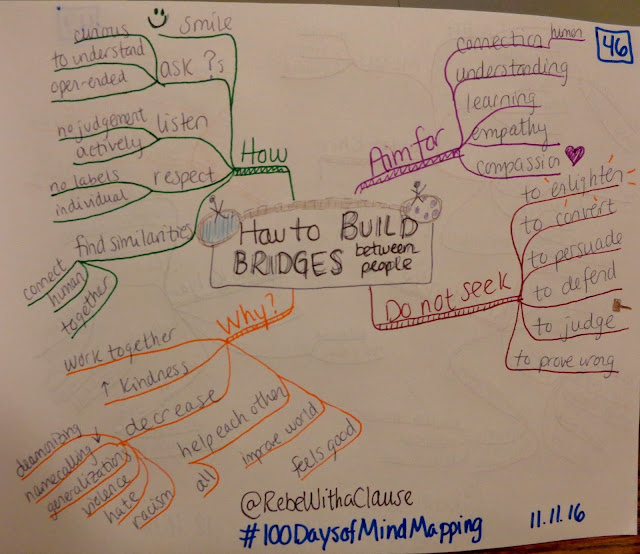 46
How to BUILD
BRIDGES between
people
Aim for
connection human
understanding
learning
empathy
compassion
Do not seek
to enlighten
to convert
to persuade
to defend
to judge
to prove wrong
How
smile
ask ?s
curious
to understand
open-ended
listen
no judgement
actively
respect
no labels
individual
find similarities
connect
human
together
Why?
work together
↑ kindness
decrease ↓
deamonizing
namecalling
generalizations
violence
hate
racism
help each other
all
improve world
feels good
@RebeWithaClause
#100DaysofMindMapping
11.11.16